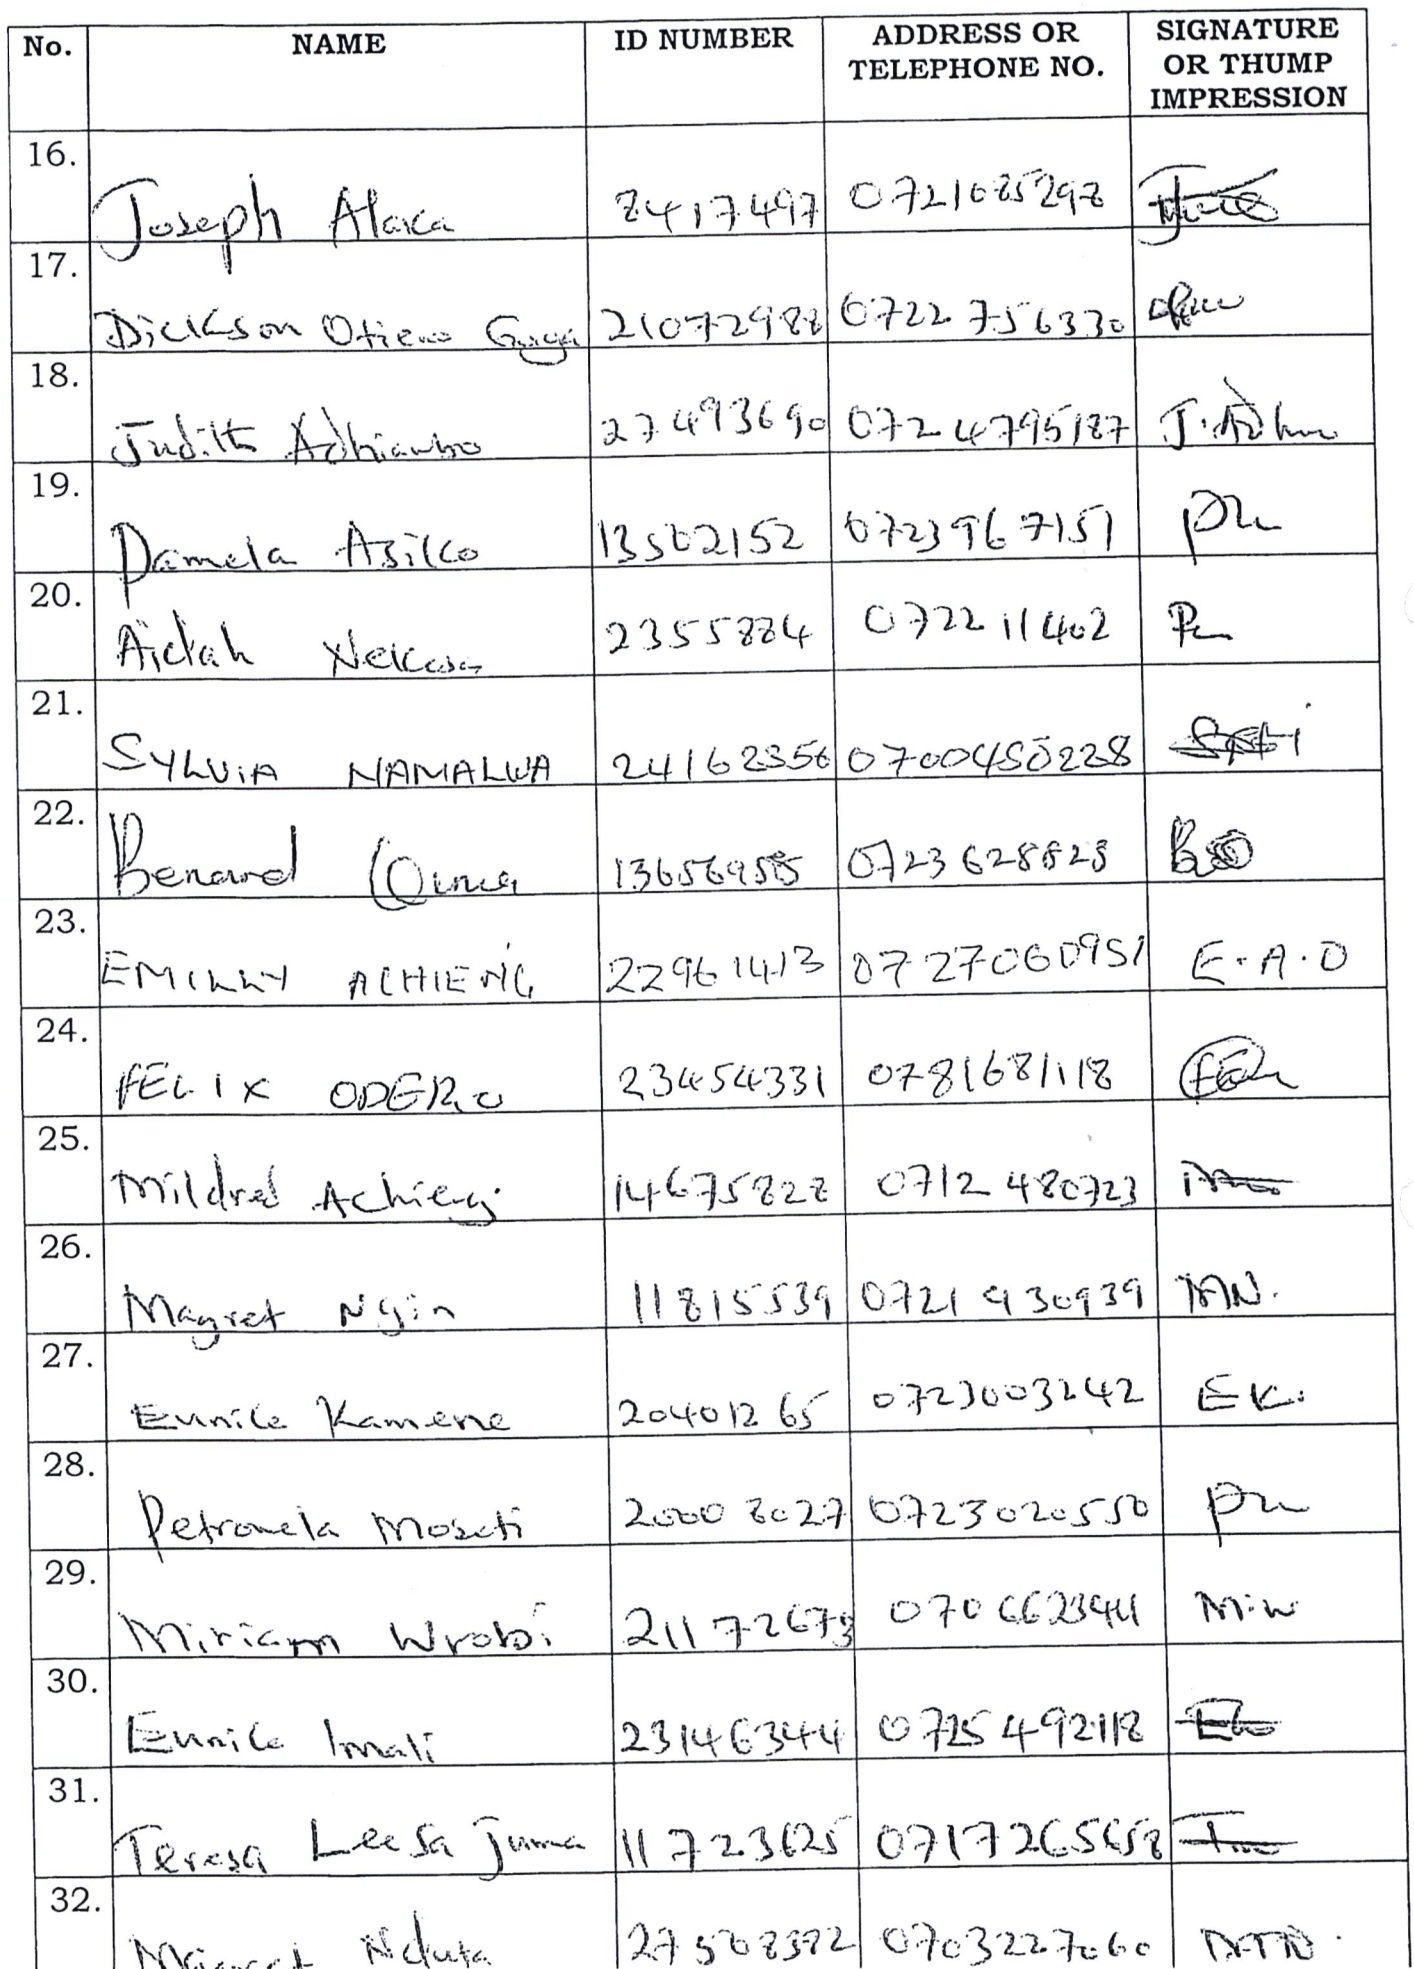 No. NAME ID NUMBER ADDRESS OR TELEPHONE NO. SIGNATURE OR THUMP IMPRESSION
16. Joseph Alaka 8417497 0721085298
17. Dickson Otieno 21072988 0722 756330
18. Judith Adhiambo 27493690 0724795187 J.
19. Pamela Asiko 13502152 0723967151
20. Aidah 2355884 072211402
21. SYLVIA NAMALWA 24162356 0700450228
22. Benard Ouma 0723628828
23. EMILLY ACHIENG 22961413 0727060951 E.A.O
24. FELIX ODERO 23454331 0781681118
25. Mildred Achieng 14675828 0712 480723
26. Magret Ngin 11815539 0721930939 MN.
27. Eunice Kamene 20401265 0723003242 EK.
28. Petronela Moseti 20008027 0723020550
29. Miriam Wrobi 21172673 0706662344 M.W
30. Eunice Imali 23146344 0725492118
31. Teresa Leesa Juma 11723625 0717265658
32. Margret Nduta 27508382 0703227060